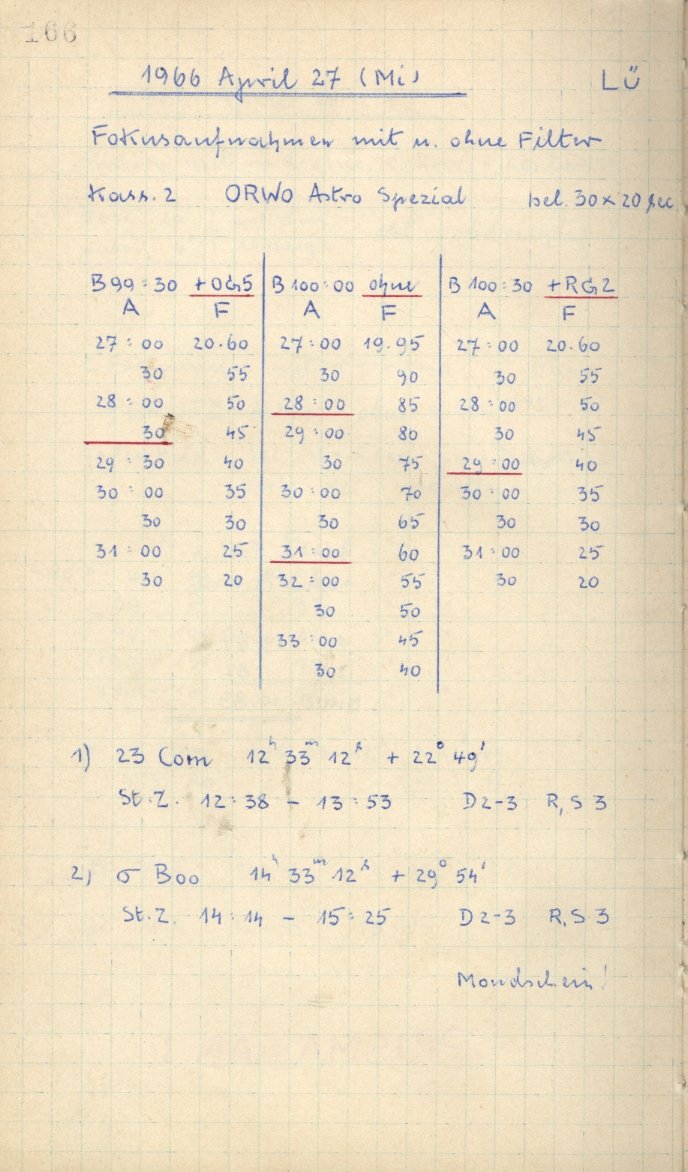 166
1966 April 27 (Mi) LÜ
Fokusaufnahmen mit u. ohne Filter
Kass. 2 ORWO Astro Spezial bel. 30×20 sec
B 99:30 +OG5 B 100:00 ohne B 100:30 +RG2
A F A F A F
27:00 20.60 27:00 19.95 27:00 20.60
30 55 30 90 30 55
28:00 50 28:00 85 28:00 50
30 45 29:00 80 30 45
29:30 40 30 75 29:00 40
30:00 35 30:00 70 30:00 35
30 30 30 65 30 30
31:00 25 31:00 60 31:00 25
30 20 32:00 55 30 20
30 50
33:00 45
30 40
1) 23 Com 12ʰ 33ᵐ 12ˢ + 22° 49'
St.Z. 12:38 – 13:53 D 2-3 R,S 3
2) σ Boo 14ʰ 33ᵐ 12ˢ + 29° 54'
St.Z. 14:14 – 15:25 D 2-3 R,S 3
Mondschein!